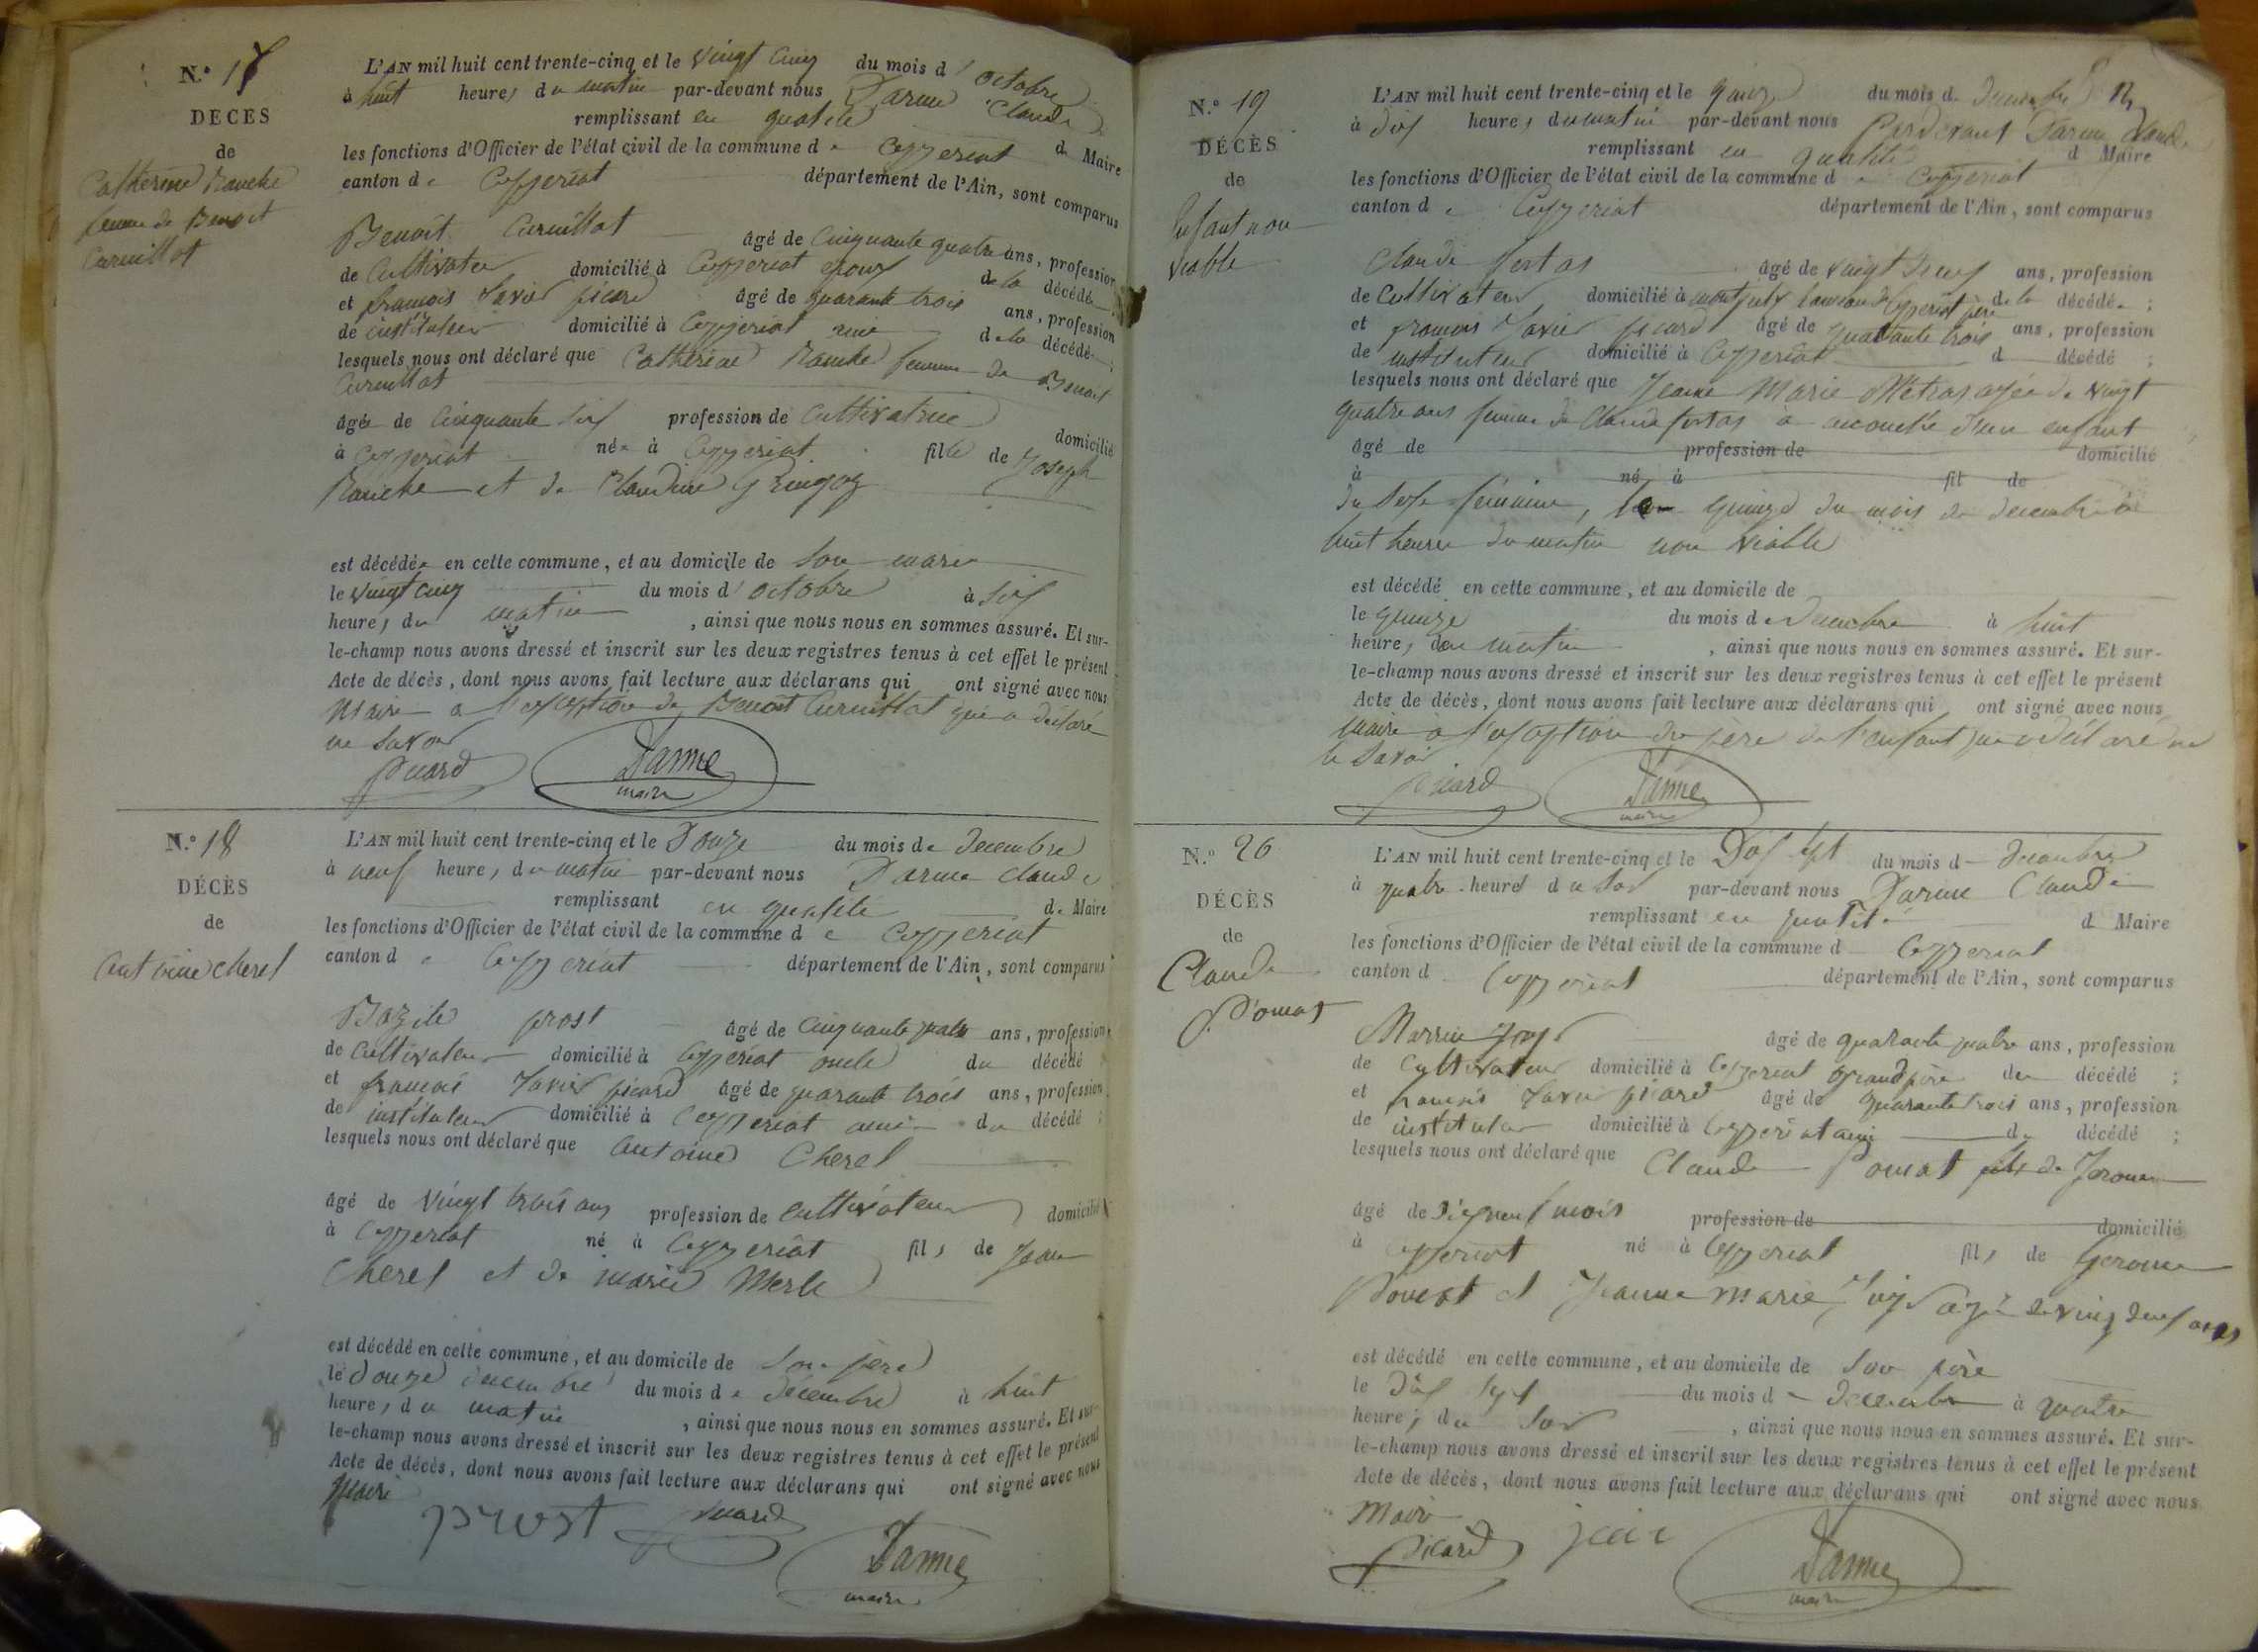 N.° 17
DECES
de
Catherine
femme de Benoit
Curnillat
L'AN mil huit cent trente-cinq et le vingt cinq du mois d' octobre
à huit heures du matin par-devant nous Darme Claude
remplissant en qualité de Maire
les fonctions d'Officier de l'état civil de la commune de Ceyzeriat
canton de Ceyzeriat département de l'Ain, sont comparus
Benoit Curnillat âgé de cinquante quatre ans, profession
de Cultivateur domicilié à Ceyzeriat epoux de la décédée
et françois Xavier picard âgé de quarante trois ans, profession
de instituteur domicilié à Ceyzeriat ami de la décédée ;
lesquels nous ont déclaré que Catherine femme de Benoit
Curnillat
âgée de cinquante six profession de cultivatrice domicilié
à Ceyzeriat née à Ceyzeriat fille de Joseph
et de Claudine
est décédée en cette commune, et au domicile de son mari
le vingt cinq du mois d' octobre à six
heures du matin , ainsi que nous nous en sommes assuré. Et sur-
le-champ nous avons dressé et inscrit sur les deux registres tenus à cet effet le présent
Acte de décès, dont nous avons fait lecture aux déclarans qui ont signé avec nous
Maire a l'exception de Benoit Curnillat qui a déclaré
ne savoir
picard Darme
maire
N.° 18
DÉCÈS
de
antoine cherel
L'AN mil huit cent trente-cinq et le Douze du mois de decembre
à neuf heures du matin par-devant nous Darme Claude
remplissant en qualité de Maire
les fonctions d'Officier de l'état civil de la commune de Ceyzeriat
canton de Ceyzeriat département de l'Ain, sont comparus
Bazile prost âgé de cinquante quatre ans, profession
de cultivateur domicilié à Ceyzeriat oncle du décédé
et françois Xavier picard âgé de quarante trois ans, profession
de instituteur domicilié à Ceyzeriat ami du décédé ;
lesquels nous ont déclaré que antoine Cherel
âgé de vingt trois ans profession de cultivateur domicilié
à Ceyzeriat né à Ceyzeriat fils de Jean
Cherel et de marie Merle
est décédé en cette commune, et au domicile de son père
le douze decembre du mois de décembre à huit
heures du matin , ainsi que nous nous en sommes assuré. Et sur-
le-champ nous avons dressé et inscrit sur les deux registres tenus à cet effet le présent
Acte de décès, dont nous avons fait lecture aux déclarans qui ont signé avec nous
Maire
prost picard
Darme
maire
N.° 19
DÉCÈS
de
Enfant non
viable
L'AN mil huit cent trente-cinq et le quinze du mois de
à dix heures du matin par-devant nous Pardevant Darme Claude
remplissant en qualité d Maire
les fonctions d'Officier de l'état civil de la commune de Ceyzeriat
canton de Ceyzeriat département de l'Ain, sont comparus
Claude fortas âgé de vingt neuf ans, profession
de Cultivateur domicilié à père de la décédée ;
et françois Xavier picard âgé de quarante trois ans, profession
de instituteur domicilié à Ceyzeriat d décédé ;
lesquels nous ont déclaré que Jeanne Marie Métras agée de vingt
quatre ans femme de Claude fortas a accouché d'un enfant
âgé de profession de domicilié
à né à fil de
du sexe féminin, quinze du mois de decembre à
huit heures du matin non viable
est décédé en cette commune, et au domicile de
le quinze du mois de decembre à huit
heures du matin , ainsi que nous nous en sommes assuré. Et sur-
le-champ nous avons dressé et inscrit sur les deux registres tenus à cet effet le présent
Acte de décès, dont nous avons fait lecture aux déclarans qui ont signé avec nous
maire à l'exception du père de l'enfant qui a déclaré ne
le savoir
picard Darme
maire
N.° 20
DÉCÈS
de
Claude
Pomat
L'AN mil huit cent trente-cinq et le Dix sept du mois d decembre
à quatre heures du soir par-devant nous Darme Claude
remplissant en qualité d Maire
les fonctions d'Officier de l'état civil de la commune d Ceyzeriat
canton d Ceyzeriat département de l'Ain, sont comparus
âgé de quarante quatre ans, profession
de Cultivateur domicilié à Ceyzeriat grand père du décédé ;
et francois Xavier picard âgé de quarante trois ans, profession
de instituteur domicilié à Ceyzeriat ami du décédé ;
lesquels nous ont déclaré que Claude Pomat fils de Jerome
âgé de dix neuf mois profession de domicilié
à Ceyzeriat né à Ceyzeriat fils de Gerome
Pomat et Jeanne Marie agée de vingt deux ans
est décédé en cette commune, et au domicile de son père
le Dix sept du mois de decembre à quatre
heures du soir , ainsi que nous nous en sommes assuré. Et sur-
le-champ nous avons dressé et inscrit sur les deux registres tenus à cet effet le présent
Acte de décès, dont nous avons fait lecture aux déclarans qui ont signé avec nous
Maire
picard Darme
maire